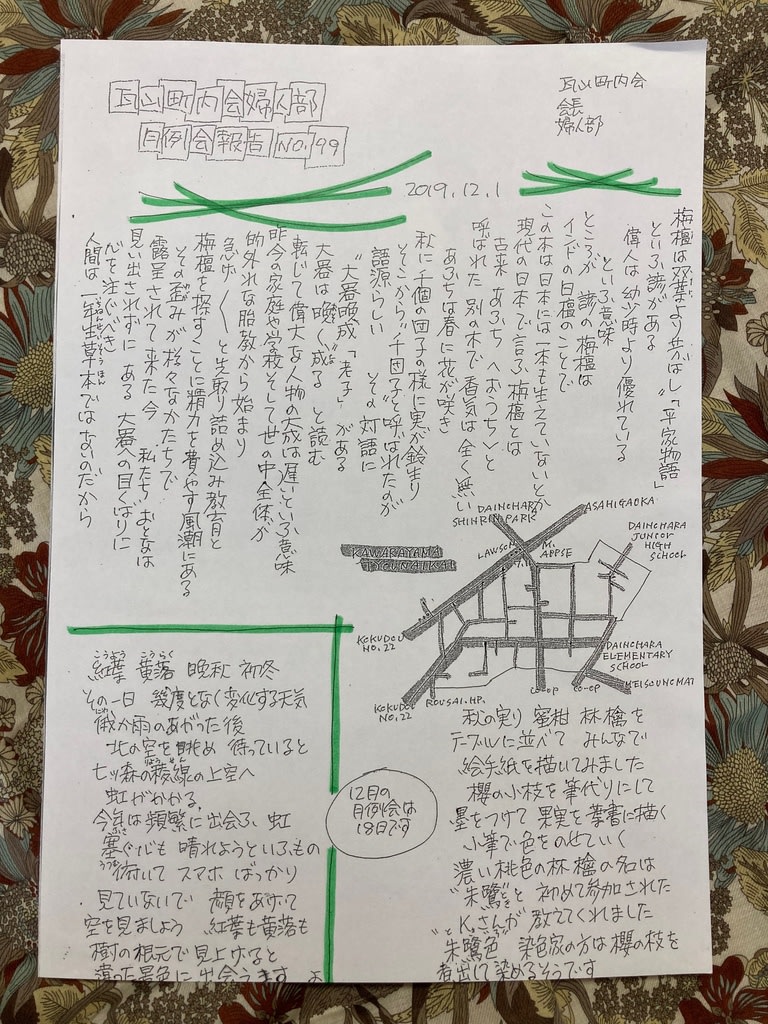 瓦山町内会婦人部
月例会報告 NO.99
瓦山町内会
会長
婦人部
2019.12.1
栴檀は双葉より芳ばし"「平家物語」
といふ諺がある
偉人は幼少時より優れている
といふ意味
ところが 諺の栴檀は
インドの白檀のことで
この木は日本には一本も生えていないとか
現代の日本で言ふ栴檀とは
古来 あふち 〈おうち〉と
呼ばれた 別の木で 香気は全く無い
あふちは春に花が咲き
秋に千個の団子の様に実が鈴生り
そこから"千団子"と呼ばれたのが
語源らしい その対語に
"大器晩成"「老子」がある
大器は晩く成る と読む
転じて偉大な人物の大成は遅いといふ意味
昨今の家庭や学校そして世の中全体が
的外れな胎教から始まり
急げ〱と先取り詰め込み教育と
栴檀を探すことに精力を費やす風潮にある
その歪みが様々なかたちで
露呈されて来た今 私たちおとなは
見い出されずに ある 大器への目くばりに
心を注ぐべき
人間は 一年生草本ではないのだから
KAWARAYAMA
TYOUNAIKAI
DAINOHARA
SHINRIN PARK
ASAHIGAOKA
LAWSON
M.
APPSE
DAINOHARA
JUNIOR
HIGH
SCHOOL
KOKUDOU
NO.22
DAINOHARA
ELEMENTARY
SCHOOL
KOKUDOU
NO.22
ROUSAI.HP.
CO-OP
CO-OP
紅葉 黄落 晩秋 初冬
こうよう こうらく
その一日 幾度となく変化する天気
俄か雨のあがった後
北の空を眺め 待っていると
七ッ森の稜線の上空へ
虹がかかる
今年は頻繁に出会ふ 虹
塞ぐ心も 晴れようといふもの
俯いて スマホ ばっかり
見ていないで 顔をあげて
空を見ましょう 紅葉も黄落も
樹の根元で見上げると
違った景色に出会うます よ
12月の
月例会は
18日です
秋の実り 蜜柑 林檎を
テーブルに並べて みんなで
絵手紙を描いてみました
櫻の小枝を筆代りにして
墨をつけて 果実を葉書に描く
小筆で色をのせていく
濃い桃色の林檎の名は
"朱鷺"と 初めて参加された
K.さんが 教えてくれました
"朱鷺色" と 染色家の方は櫻の枝を
煮出して染めるそうです